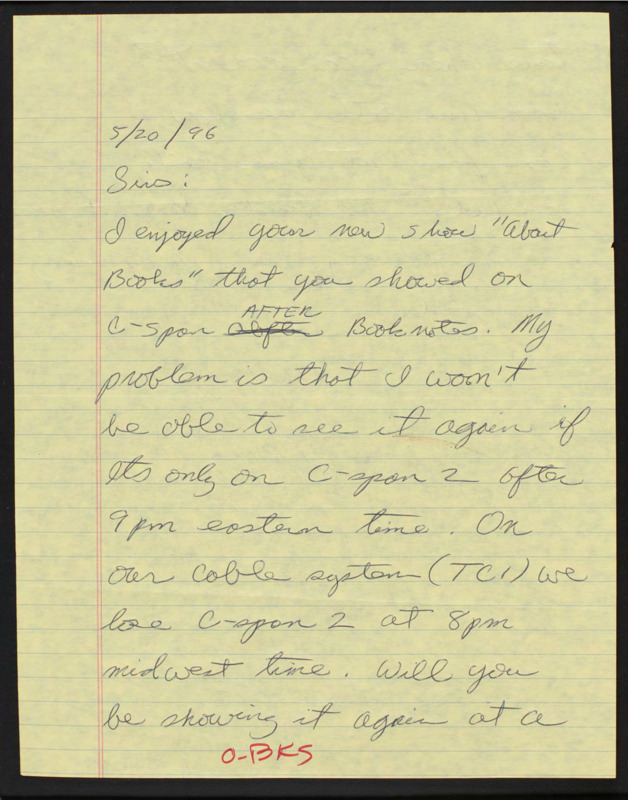 5/20/96
Sirs:
I enjoyed your new show "About
Books" that you showed on
C-span AFTER Booknotes. My
problem is that I won't
be able to see it again if
its only on C-span 2 after
9pm eastern time. On
our cable system (TCI) we
lose C-span 2 at 8pm
midwest time. Will you
be showing it again at a
O-BKS